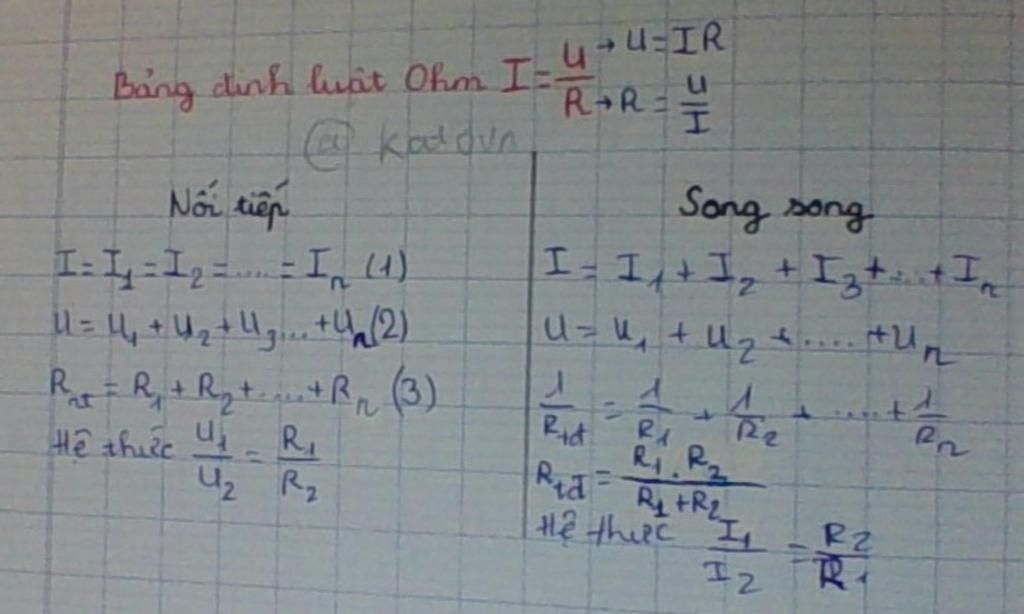 Bảng định luật Ohm I = U/R → U = IR
→ R = U/I
@ kaddvn
Nối tiếp
I = I₁ = I₂ = .... = Iₙ (1)
U = U₁ + U₂ + U₃ ... + Uₙ (2)
Rₙₜ = R₁ + R₂ + .... + Rₙ (3)
Hệ thức U₁/U₂ = R₁/R₂
Song song
I = I₁ + I₂ + I₃ + ... + Iₙ
U = U₁ + U₂ + .... + Uₙ
1/Rtđ = 1/R₁ + 1/R₂ + .... + 1/Rₙ
Rtđ = R₁ . R₂ / R₁ + R₂
Hệ thức I₁/I₂ = R₂/R₁